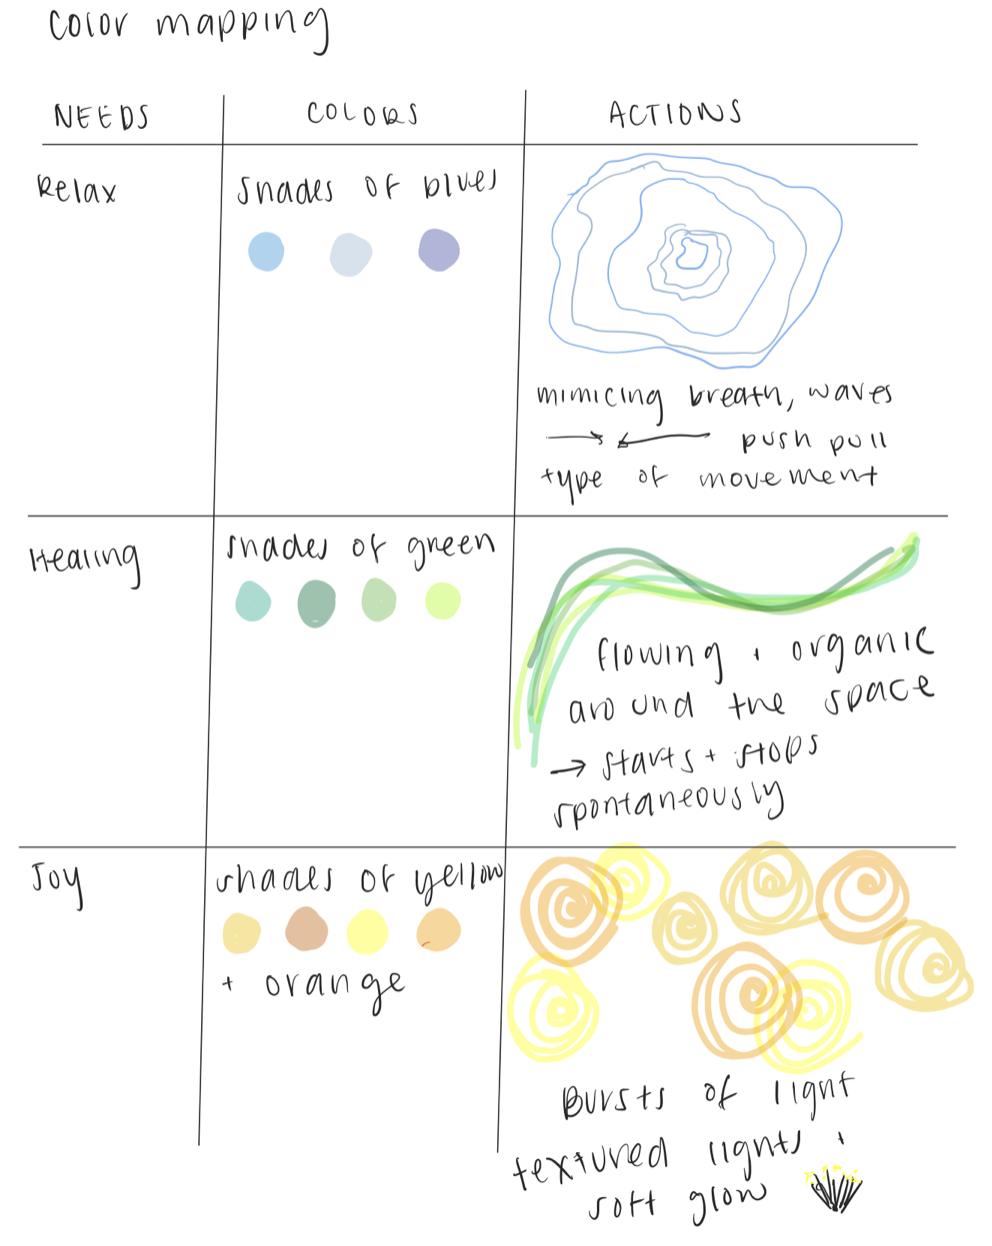 Color mapping
NEEDS
COLORS
ACTIONS
Relax
shades of blues
mimicing breath, waves
→ ← push pull
type of movement
Healing
shades of green
flowing + organic
around the space
→ starts + stops
spontaneously
Joy
shades of yellow
+ orange
Bursts of light
textured lights +
soft glow